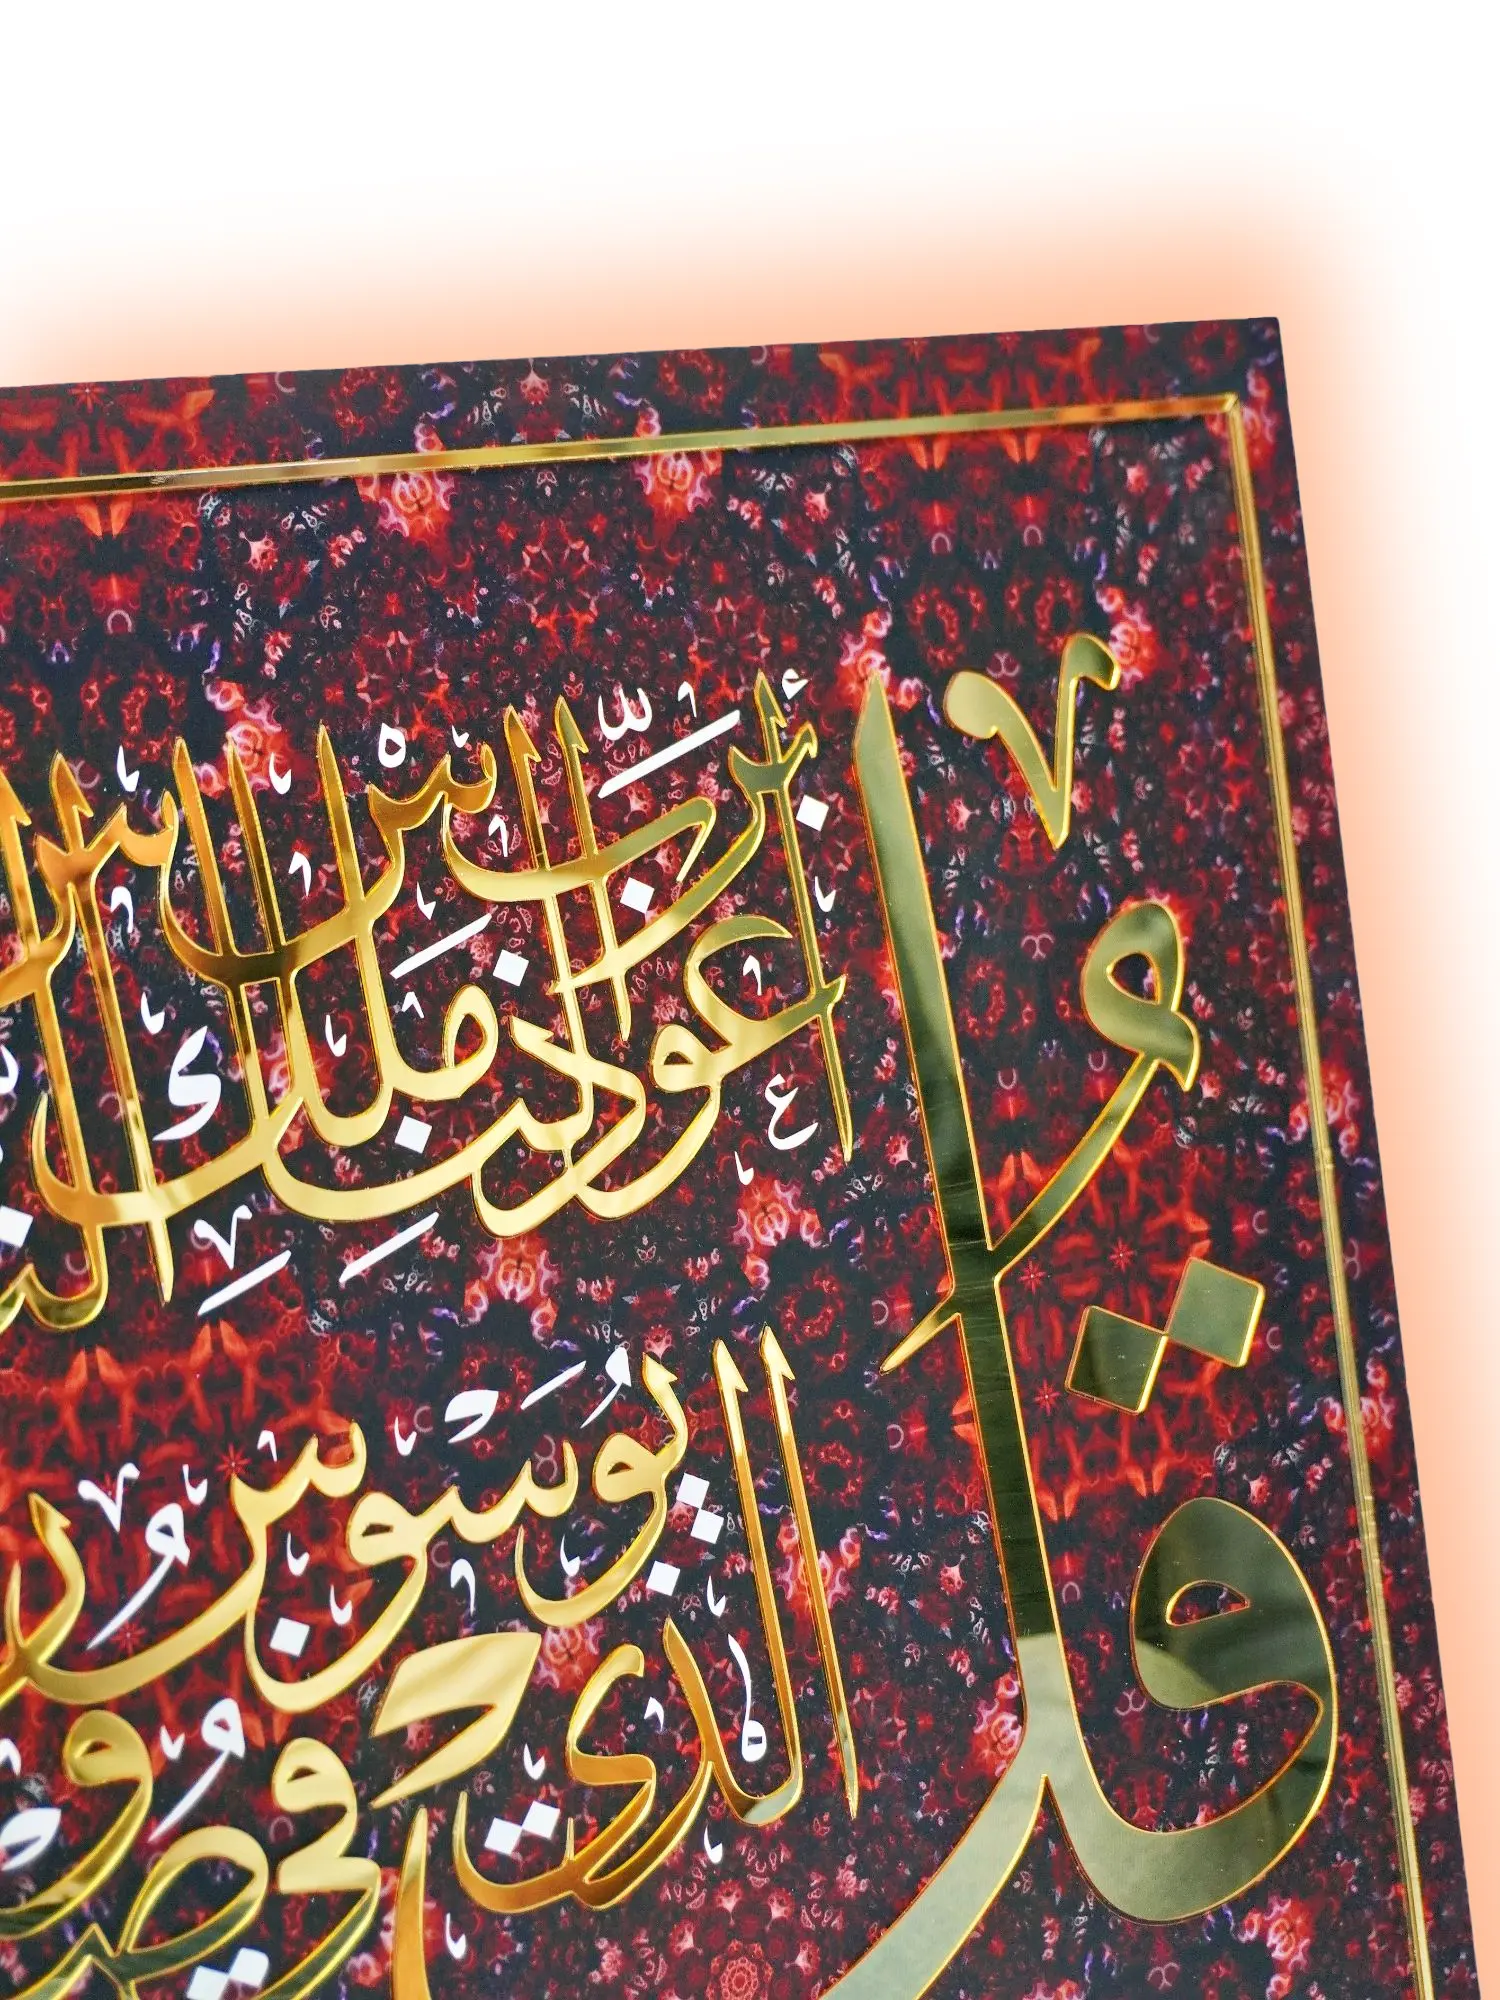 قُلْ
أَعُوذُ بِرَبِّ النَّاسِ مَلِكِ النَّاسِ
الَّذِي يُوَسْوِسُ فِي صُدُورِ